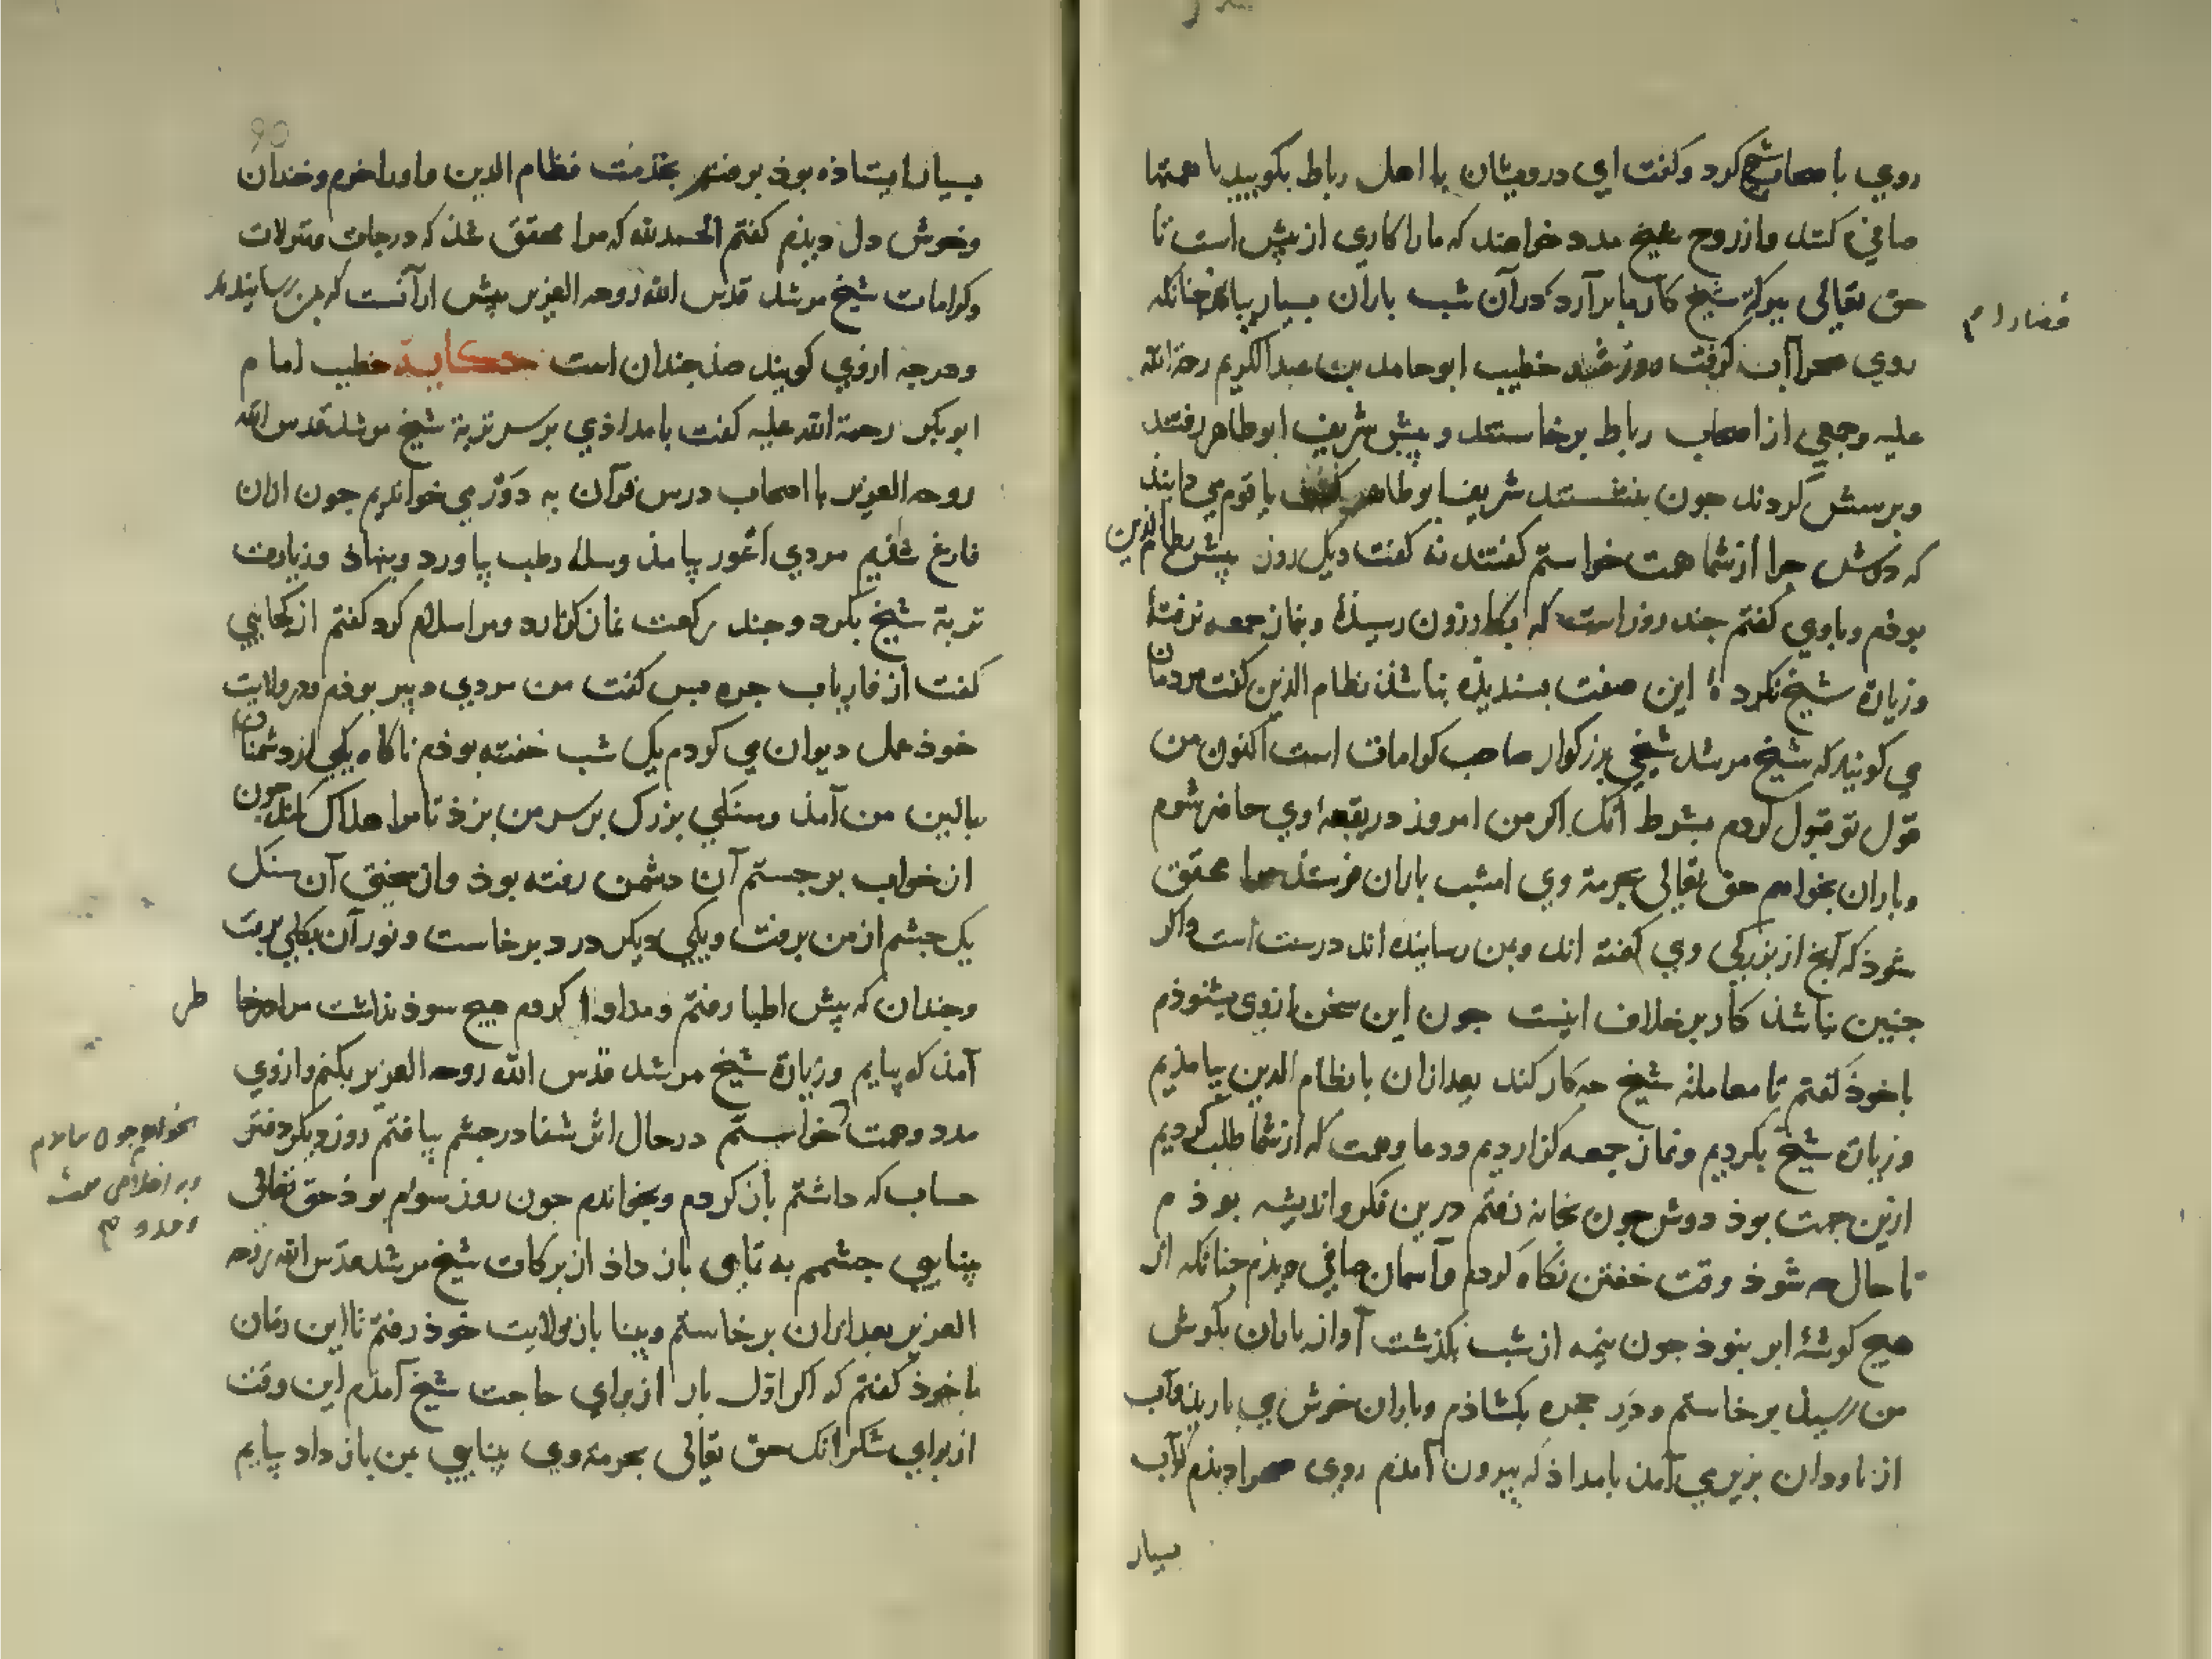 روي با صحاب شيخ كرد و كفت اي درويشان با اهل رباط بكوييد تا همتها
صافي كنند و از روح شيخ مدد خواهند كه ما را كاري از پيش است تا
حق تعالى ببركة شيخ كار ما برآرد كه در آن شب باران بسيار بيامد چنانكه
قضا را م
روي صحرا آب كرفت روز شد خطيب ابو حامد بن عبد الكريم رحمة الله
عليه و جمعي از اصحاب رباط برخاستند و پيش شريف ابو طاهر رفتند
و پرسش كردند جون بنشستند شريف ابو طاهر كفت با قوم مي دانيد
كه دوش چرا از شما همت خواستم كفتند نه كفت ديك روز پيش نظام الدين
بوذم و با وي كفتم جند روز است كه بكازرون رسيذۀ و بنماز جمعه نرفتۀ
و زيارة شيخ نكردۀ اين صفت پسنديذه نباشذ نظام الذين كفت مردمان
مي كويند كه شيخ مرشد شيخي بزركوار صاحب كرامات است اكنون من
قول تو قبول كردم بشرط آنك اكر من امروز در بقعۀ وي حاضر شوم
و باران بخواهم حق تعالى بحرمة وي امشب باران فرستد مرا محقق
شوذ كه آنج از بزركي وي كفته اند و بمن رسانيده اند درست است و اكر
جنين نباشذ كار بر خلاف اينست جون اين سخن از وي بشنوذم
با خوذ كفتم تا معاملۀ شيخ چه كار كند بعد از آن با نظام الدين بيامذيم
و زيارة شيخ بكرديم و نماز جمعه كزارديم و دعا و همت كه از شما طلب كرديم
ازين جهت بوذ دوش جون بخانه رفتم درين فكر و انديشه بوذم
تا حال چه شوذ وقت خفتن نكاه كردم و آسمان صافي ديذم چنانكه از
هيج كوشۀ ابر نبوذ جون نيمه از شب بكذشت آواز باران بكوش
من رسيد برخاستم و در حجره بكشاذم و باران خوش مي باريذ و آب
از ناودان بزير مي آمذ بامداذ كه بيرون آمذم روي صحرا ديذم كه آب
بسيار
90
بسيار ايستاذه بوذ برفتم بخذمت نظام الدين و او را خرم و خندان
و خوش دل ديذم كفتم الحمد لله كه مرا محقق شذ كه درجات و منزلات
و كرامات شيخ مرشد قدس الله روحه العزيز بيش از آنست كه بمن رسانيدند
و هرچه از وي كويند صذ چندان است حكاية خطيب امام
ابو بكر رحمة الله عليه كفت بامداذي بر سر تربة شيخ مرشد قدس الله
روحه العزيز با اصحاب درس قرآن به دور مي خوانديم جون از آن
فارغ شذيم مردي اعور بيامذ و سلۀ رطب بياورد و بنهاذ و زيارت
تربة شيخ بكرد و چند ركعت نماز كزارد و مرا سلام كرد كفتم از كجايي
كفت از فارياب جره پس كفت من مردي دبير بوذم و در ولايت
خوذ عمل ديوان مي كردم يك شب خفته بوذم ناكاه يكي از دشمنان
ببالين من آمذ و سنكي بزرك بر سر من بزذ تا مرا هلاك كند جون
از خواب برجستم آن دشمن رفته بوذ و از سختي آن سنك
يك چشم از من برفت و يكي ديكر درد برخاست و نور آن بكلي برفت
و چندان كه پيش اطبا رفتم و مداوا كردم هيچ سوذ نداشت مرا در خا طر
آمذ كه بيايم و زيارة شيخ مرشد قدس الله روحه العزيز بكنم و از وي
مدد و همت خواستم در حال اثر شفا در چشم بيافتم روز ديكر دفتر
حساب كه داشتم باز كردم و بخواندم جون روز سوم بوذ حق تعالى
بينايي چشمم به تمامي باز داذ از بركات شيخ مرشد قدس الله روحه
العزيز بعد از آن برخاستم و بينا باز ولايت خوذ رفتم تا اين زمان
با خوذ كفتم كه اكر اول بار از براي حاجت شيخ آمذم اين وقت
از براي شكر آنك حق تعالى بحرمة وي بينايي بمن باز داد بيايم